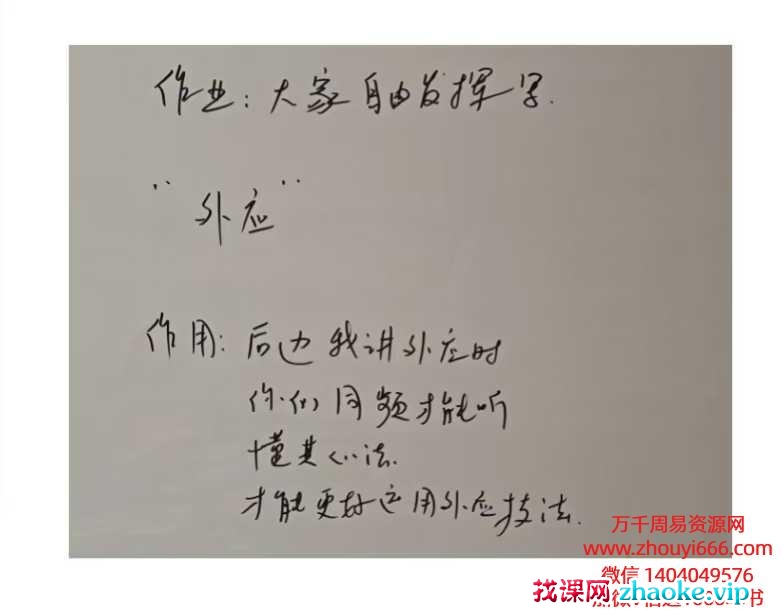 作业:大家自由发挥写.
"外应"
作用:后边我讲外应时
你们同频才能听
懂其心法.
才能更好运用外应技法.
万千周易资源网
www.zhouyi666.com
微信 1404049576
找课网 zhaoke.vip